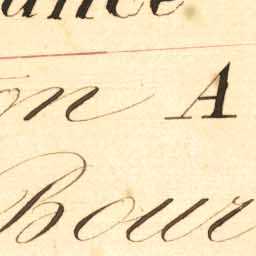 ance
on A
Bour